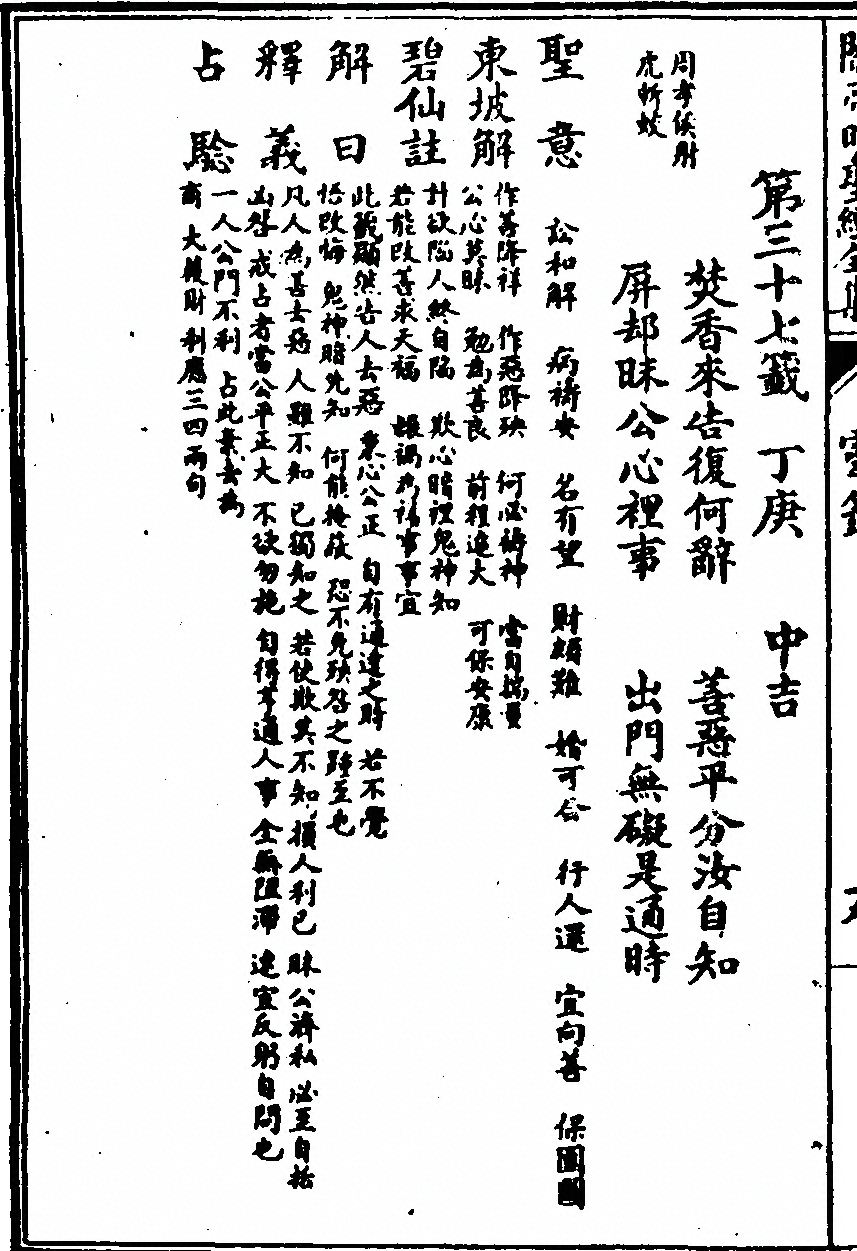 關帝明聖經全集
靈籤
第三十七籤 丁庚 中吉
焚香來告復何辭 善惡平分汝自知
屏却昧公心裡事 出門無礙是通時
周孝侯射
虎斬蛟
聖意 訟和解 病禱安 名有望 財稍難 婚可合 行人還 宜向善 保團圓
東坡解 作善降祥 作惡降殃 何必禱神 當自揣量
公心莫昧 勉為善良 前程遠大 可保安康
碧仙註 計欲陷人終自陷 欺心暗裡鬼神知
若能改善求天福 轉禍為福事事宜
解曰 此籤顯然告人去惡 秉心公正 自有通達之時 若不覺
悟改悔 鬼神暗先知 何能掩蔽 恐不免殃咎之踵至也
釋義 凡人為善去惡 人雖不知 已獨知之 若使欺其不知 損人利已 昧公濟私 必至自招
凶咎 戒占者當公平正大 不欲勿施 自得亨通人事 全無阻滯 速宜反躬自問也
占驗 一人公門不利 占此棄去為
商 大獲財利應三四兩句